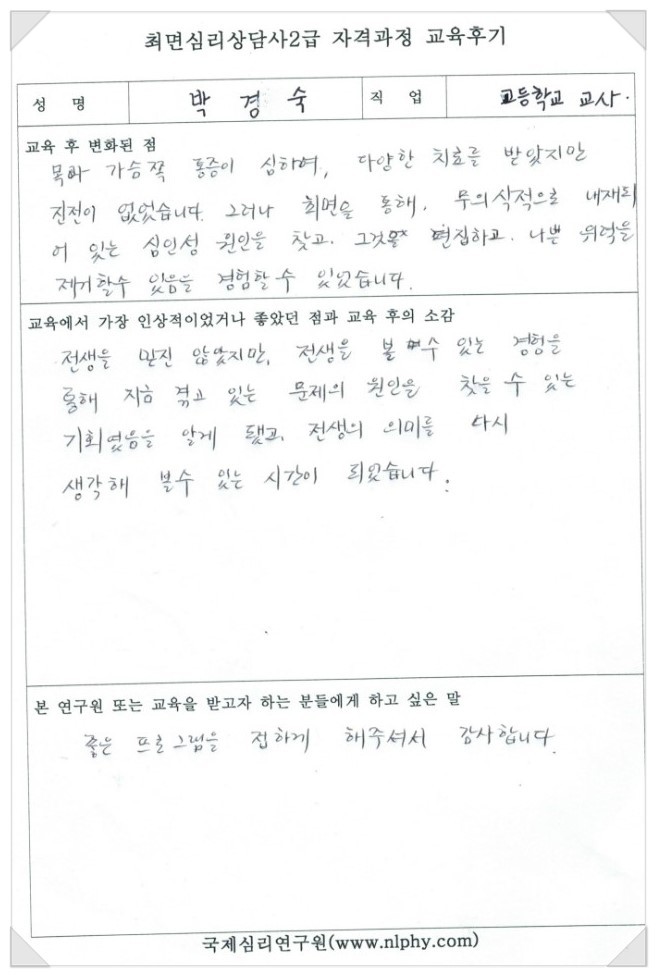 최면심리상담사2급 자격과정 교육후기
성 명 박 경 숙 직 업 고등학교 교사.
교육 후 변화된 점
목과 가슴쪽 통증이 심하여, 다양한 치료를 받았지만
진전이 없었습니다. 그러나 최면을 통해, 무의식적으로 내재되
어 있는 심인성 원인을 찾고, 그것을 편집하고, 나쁜 기억을
제거할수 있음을 경험할수 있었습니다.
교육에서 가장 인상적이었거나 좋았던 점과 교육 후의 소감
전생을 믿진 않았지만, 전생을 볼 수 있는 경험을
통해 지금 겪고 있는 문제의 원인을 찾을 수 있는
기회였음을 알게 됐고, 전생의 의미를 다시
생각해 볼수 있는 시간이 되었습니다.
본 연구원 또는 교육을 받고자 하는 분들에게 하고 싶은 말
좋은 프로그램을 접하게 해주셔서 감사합니다.
국제심리연구원(www.nlphy.com)